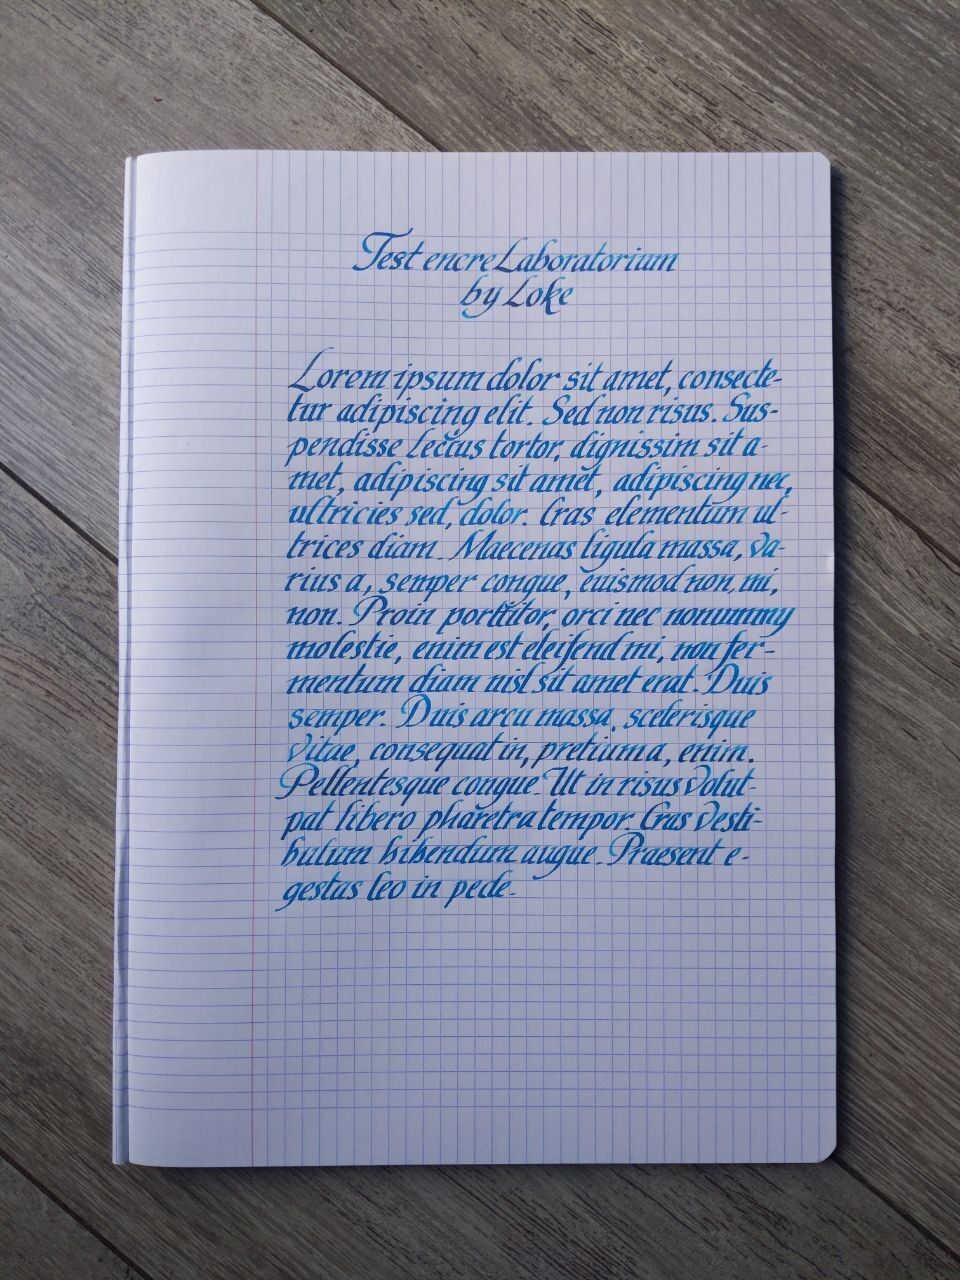 Test encre Laboratorium
by Loke
Lorem ipsum dolor sit amet, consecte-
tur adipiscing elit. Sed non risus. Sus-
pendisse lectus tortor, dignissim sit a-
met, adipiscing sit amet, adipiscing nec,
ultricies sed, dolor. Cras elementum ul-
trices diam. Maecenas ligula massa, va-
rius a, semper congue, euismod non, mi,
non. Proin porttitor, orci nec nonummy
molestie, enim est eleifend mi, non fer-
mentum diam nisl sit amet erat. Duis
semper. Duis arcu massa, scelerisque
vitae, consequat in, pretium a, enim.
Pellentesque congue. Ut in risus volut-
pat libero pharetra tempor. Cras vesti-
bulum bibendum augue. Praesent e-
gestas leo in pede.